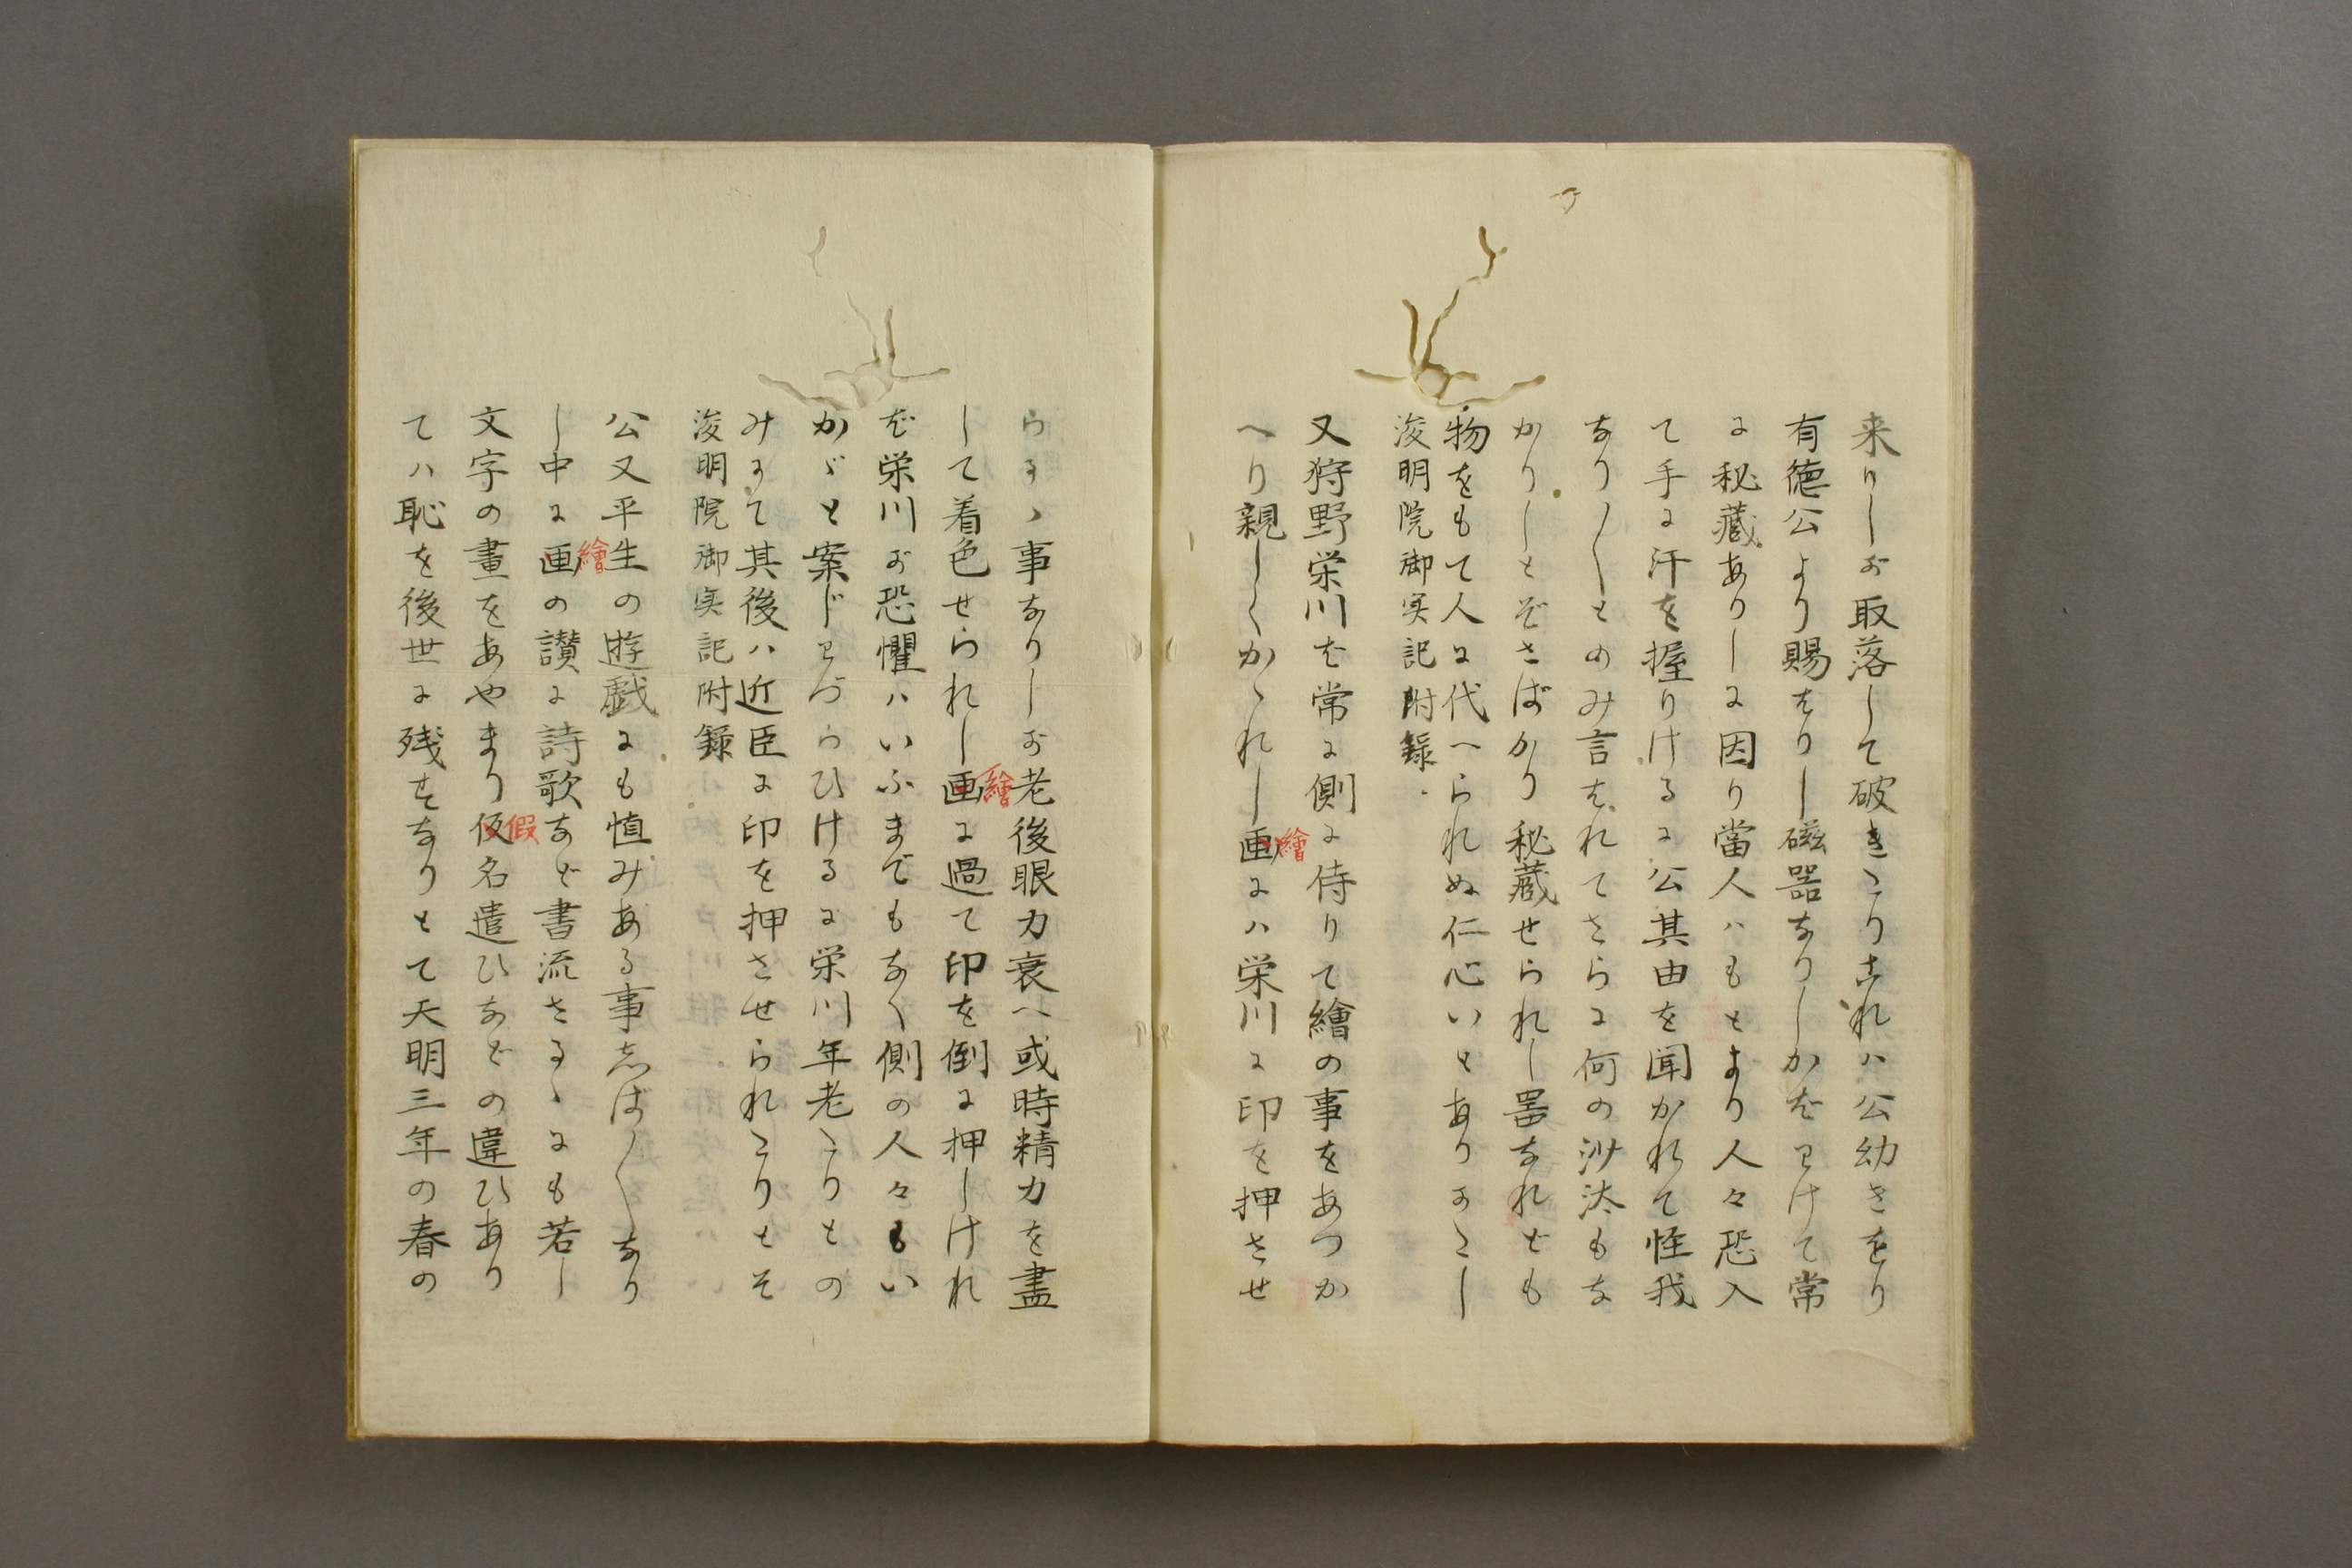 来りしお取落して破きたりこれハ公幼さをり
有徳公より賜をりし磁器なりしかバわけて常
に秘蔵ありしに因り當人ハもとより人々恐入
て手に汗を握りけるに公其由を聞かれて怪我
なり〳〵とのみ言はれてさらに何の沙汰もな
かりしとぞさばかり秘蔵せられし器なれども
物をもて人に代へられぬ仁心いとありがたし
浚明院御実記附録
又狩野栄川を常に側に侍りて繪の事をあつか
へり親しくかゝれし画繪にハ栄川に印を押させ
らるゝ事なりしお老後眼力衰へ或時精力を盡
して着色せられし画繪に過て印を倒に押しけれ
ば栄川お恐懼ハいふまでもなく側の人々もい
かゞと案じわづらひけるに栄川年老たりとの
みにて其後ハ近臣に印を押させられたりとそ
浚明院御実記附録
公又平生の遊戯にも慎みある事しば〳〵なり
し中に画繪の讃に詩歌など書流さるゝにも若し
文字の畫をあやまり仮假名遣ひなどの違ひあり
てハ恥を後世に残すなりとて天明三年の春の